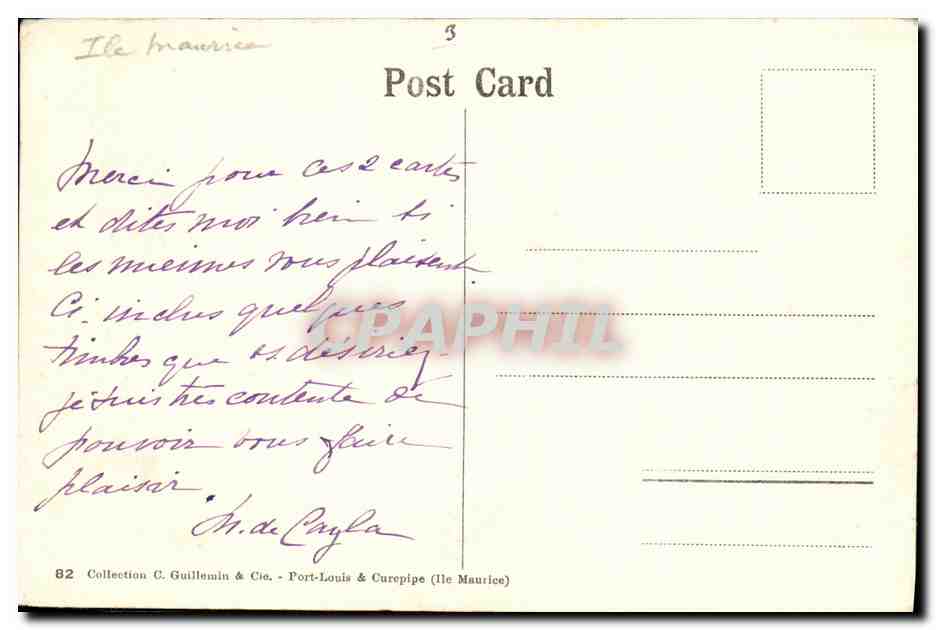 Ile Maurice
3
Post Card
Merci pour ces 2 cartes
et dites moi bien si
les miennes vous plaisent
Ci-inclus quelques
timbres que vs désiriez
je suis très contente de
pouvoir vous faire
plaisir.
M. de Cayla
CPAPHIL
82 Collection C. Guillemin & Cie. - Port-Louis & Curepipe (Ile Maurice)